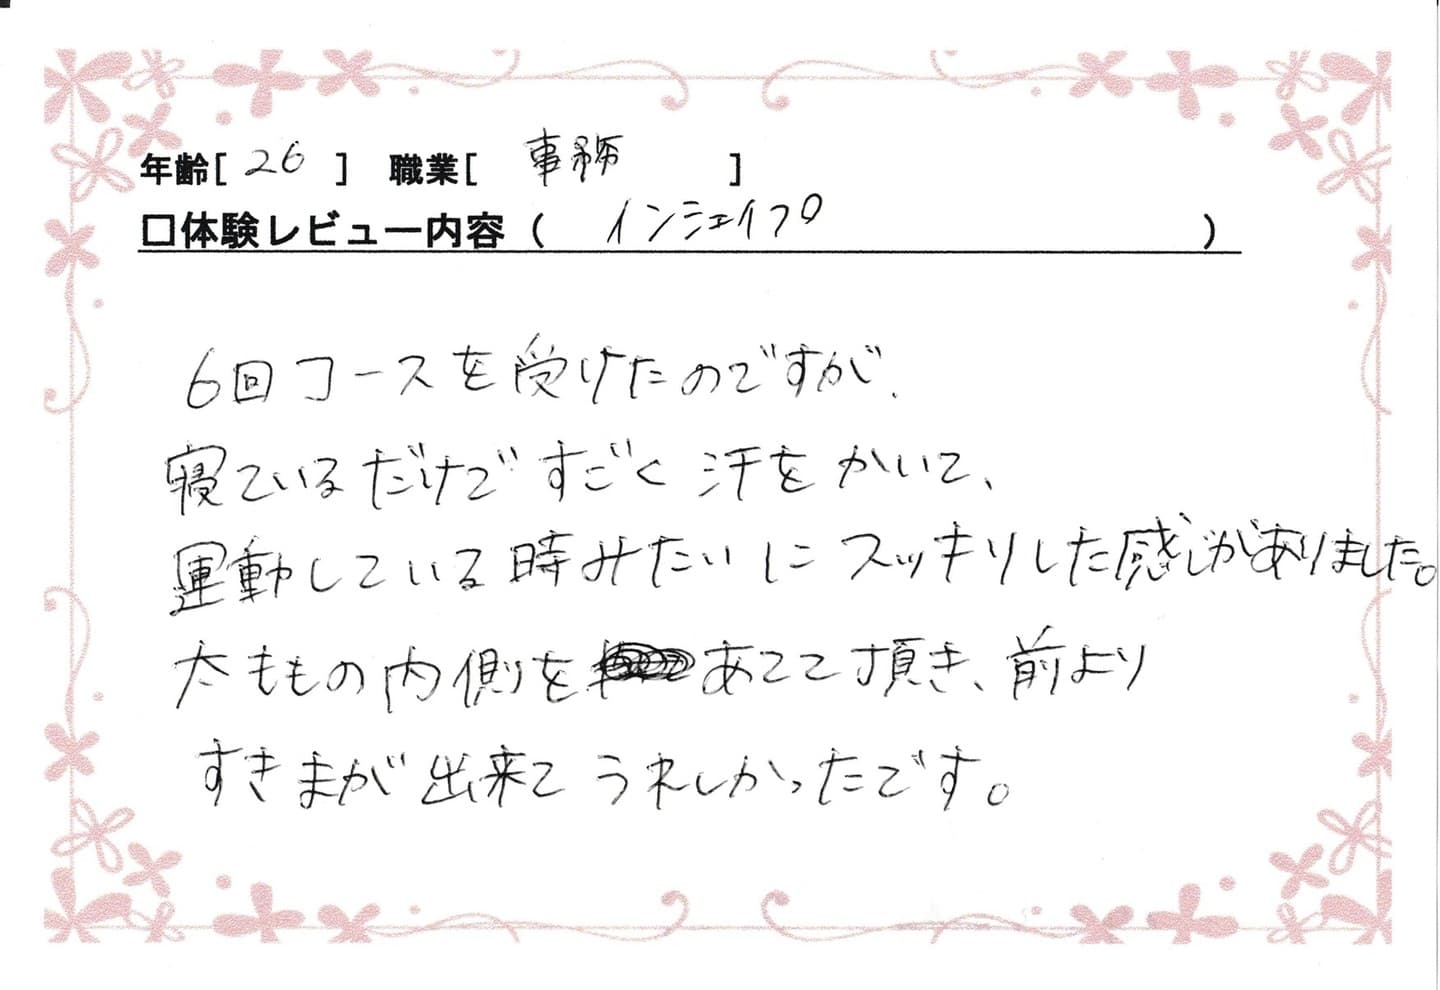 年齢[ 26 ] 職業[ 事務 ]
□体験レビュー内容 ( インシェイプ )
6回コースを受けたのですが、
寝ているだけですごく汗をかいて、
運動している時みたいにスッキリした感じがありました。
太ももの内側をあてて頂き、前より
すきまが出来てうれしかったです。